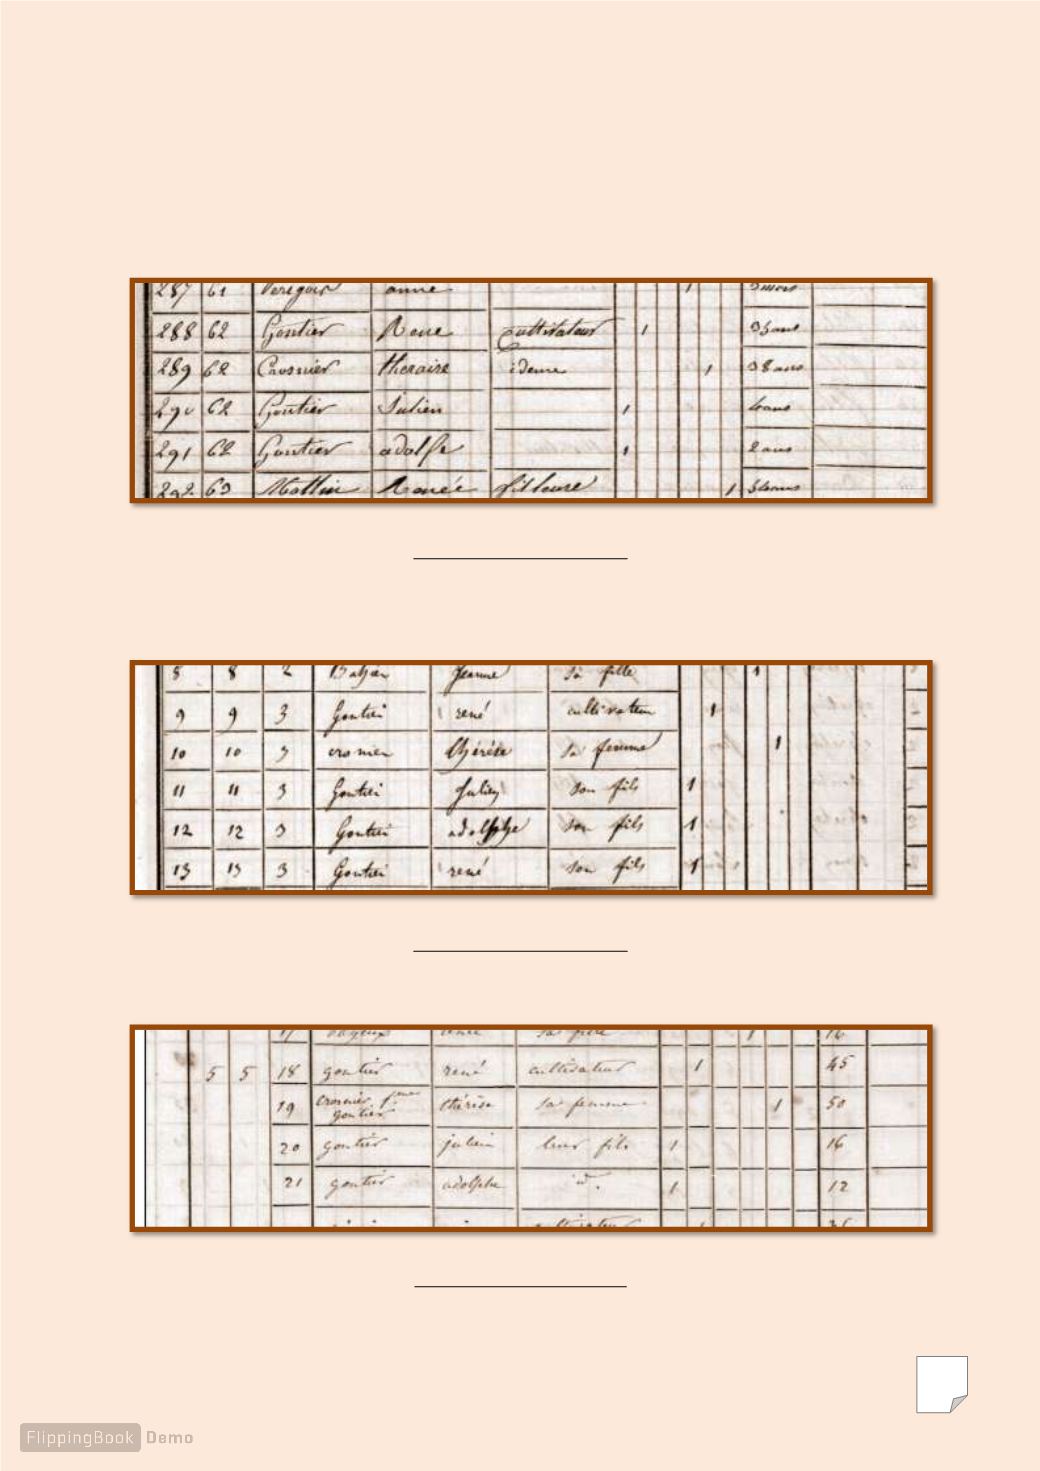 287 61 anne
288 62 Gontier Rene cultivateur 1 35 ans
289 62 Crosnier theraire ideme 1 38 ans
290 62 Gontier Julien 1 4 ans
291 62 Gontier adolfe 1 2 ans
292 63 Mottin Renée filleure 1
8 8 2 Jeanne sa fille 1
9 9 3 Gontier rené cultivateur 1
10 10 3 cronier thérèse sa femme 1
11 11 3 Gontier Julien son fils 1
12 12 3 Gontier adolphe son fils 1
13 13 3 Gontier rené son fils 1
17 1 16
5 5 18 gontier rené cultivateur 1 45
19 crosnier fme gontier thérèse sa femme 1 50
20 gontier julien leur fils 1 16
21 gontier adolphe id. 1 12
FlippingBook Demo